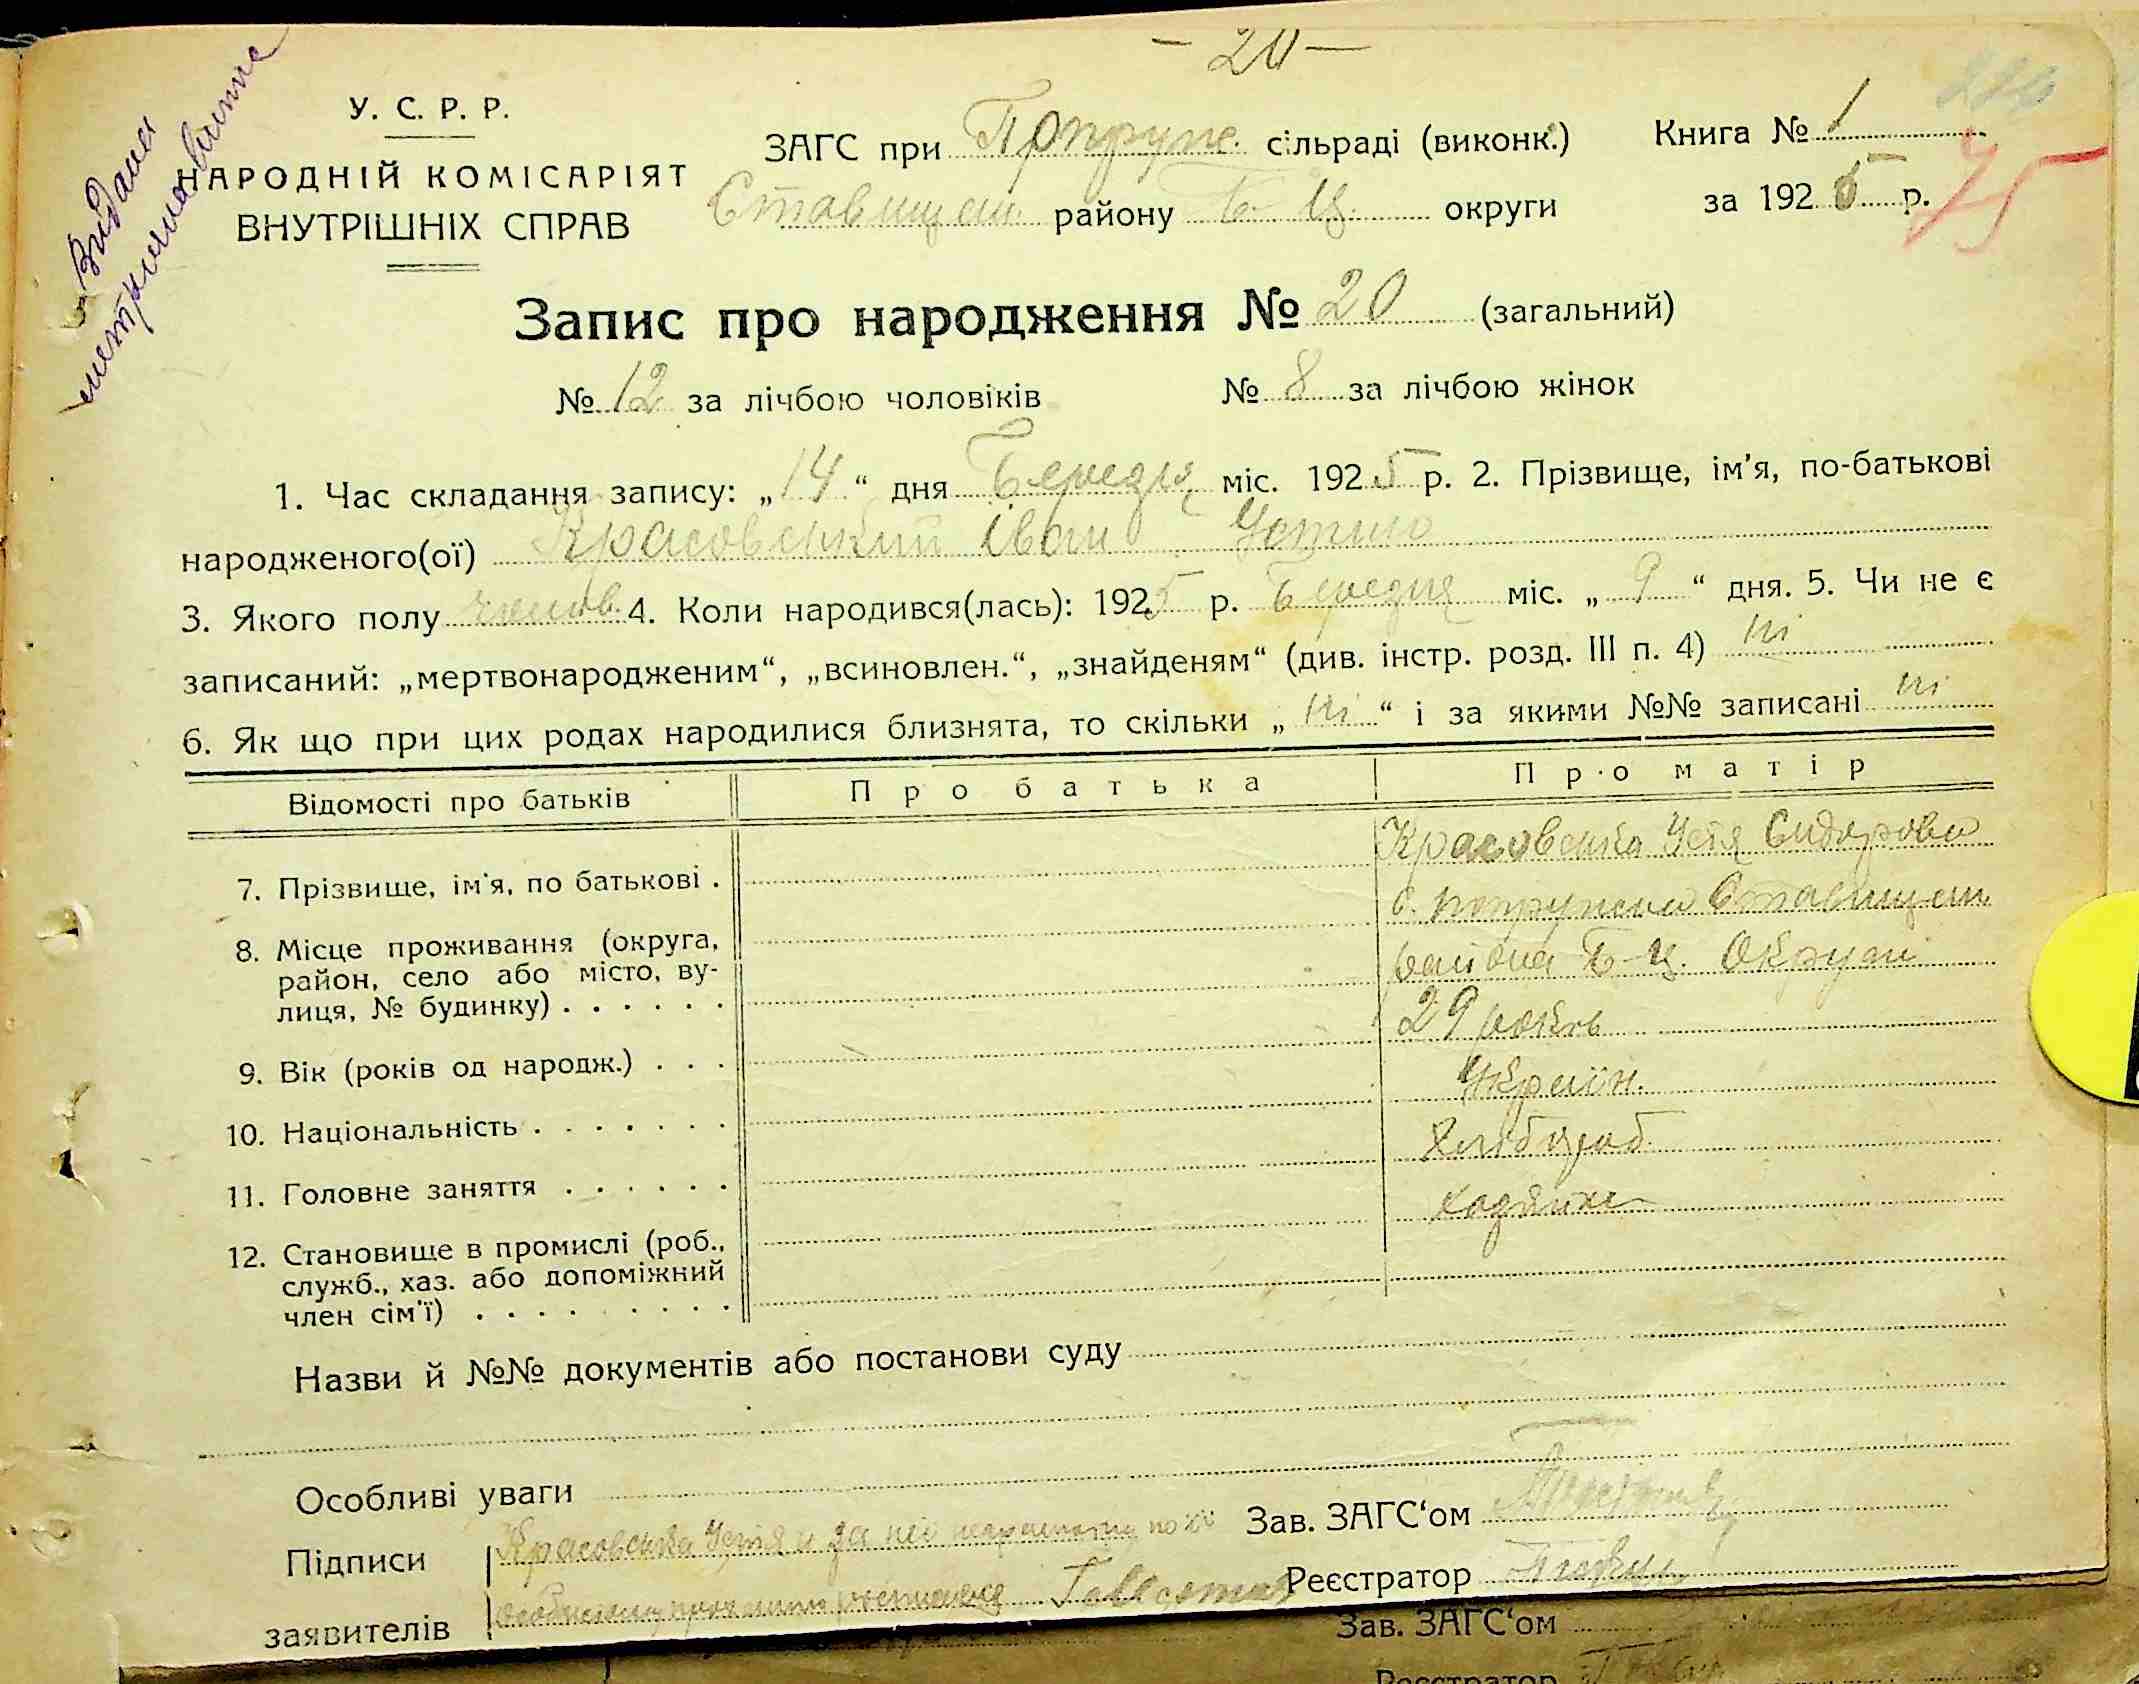 — 20 —
Видана
У. С. Р. Р.
НАРОДНІЙ КОМІСАРІЯТ
ВНУТРІШНІХ СПРАВ
ЗАГС при Попруже. сільраді (виконк.)
Ставищан. району Б-Ц. округи
Книга № 1
за 1925 р.
75
Запис про народження № 20 (загальний)
№ 12 за лічбою чоловіків № 8 за лічбою жінок
1. Час складання запису: „14“ дня Березня міс. 1925 р. 2. Прізвище, ім'я, по-батькові
народженого(ої) Красовський Іван Устино
3. Якого полу чолов. 4. Коли народився(лась): 1925 р. Березня міс. „9“ дня. 5. Чи не є
записаний: „мертвонародженим“, „всиновлен.“, „знайденям“ (див. інстр. розд. III п. 4) ні
6. Як що при цих родах народилися близнята, то скільки „ні“ і за якими №№ записані ні
Відомості про батьків Про батька Про матір
7. Прізвище, ім'я, по батькові . Красовська Устя Сидорова
8. Місце проживання (округа, с. Ставищан.
район, село або місто, ву- района Б-Ц. Округи
лиця, № будинку) . . . . . .
9. Вік (років од народж.) . . . 29 років
10. Національність . . . . . . . Україн.
11. Головне заняття . . . . . . Хлібороб
12. Становище в промислі (роб.,
служб., хаз. або допоміжний
член сім'ї) . . . . . . . . .
Назви й №№ документів або постанови суду
Особливі уваги
Підписи Красовська Устя а за неї
заявителів
Зав. ЗАГС'ом
Реєстратор
Зав. ЗАГС'ом
Реєстратор